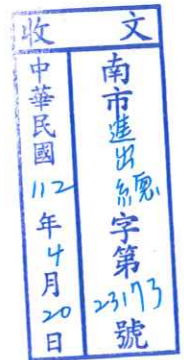 收文
南市進出總字第23173號
中華民國112年4月20日